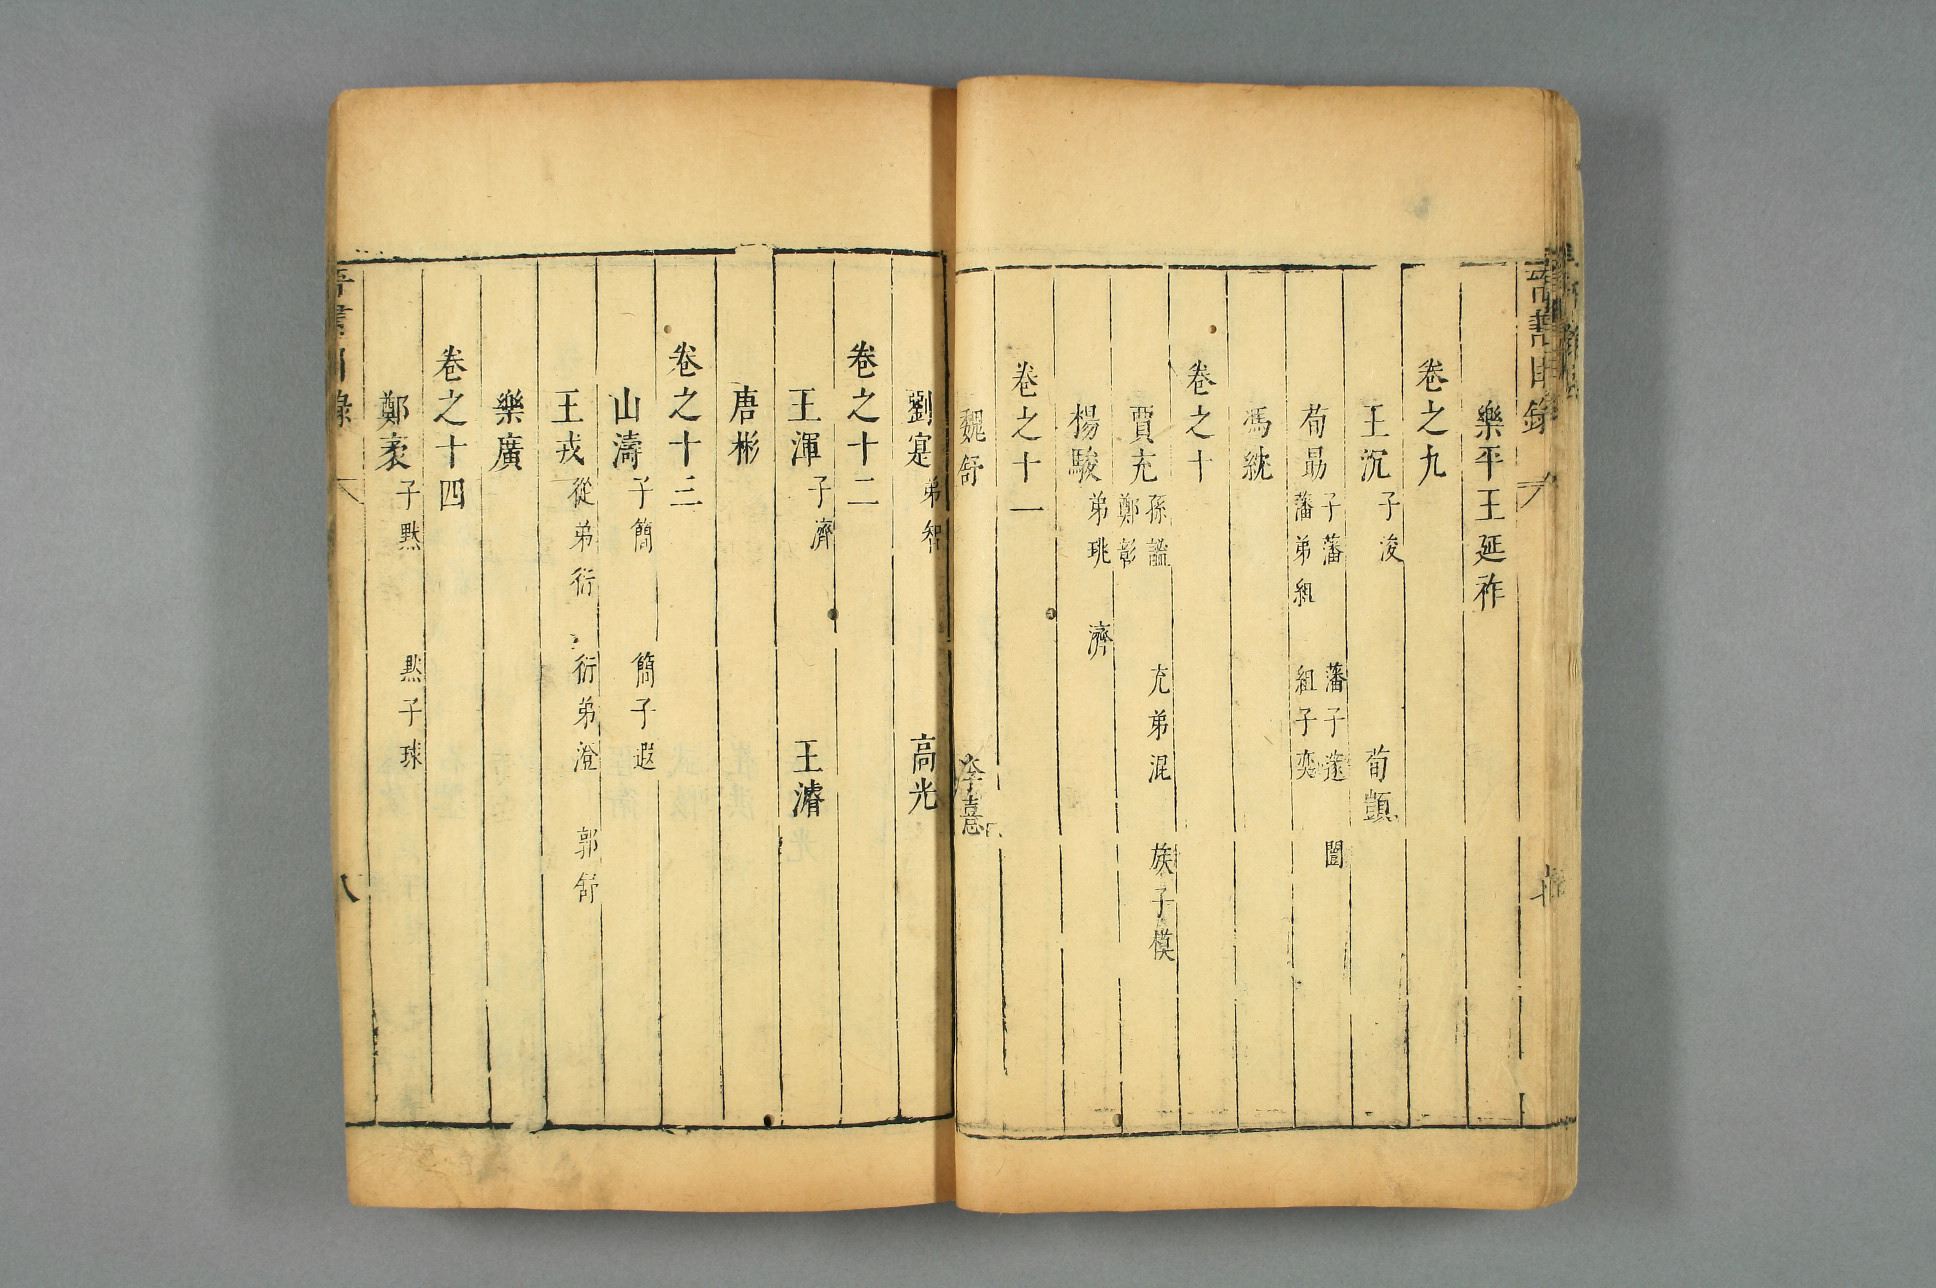 樂平王延祚
卷之九
王沉 子浚 荀顗
荀勗 子藩 藩子邃 闓 藩弟組 組子奕
馮紞
卷之十
賈充 孫謐 充弟混 族子模 鄭彰
楊駿 弟珧 濟
卷之十一
魏舒 李憙
劉寔 弟智 高光
卷之十二
王渾 子濟 王濬
唐彬
卷之十三
山濤 子簡 簡子遐
王戎 從弟衍 衍弟澄 郭舒
樂廣
卷之十四
鄭袤 子默 默子球
晉書目錄 八